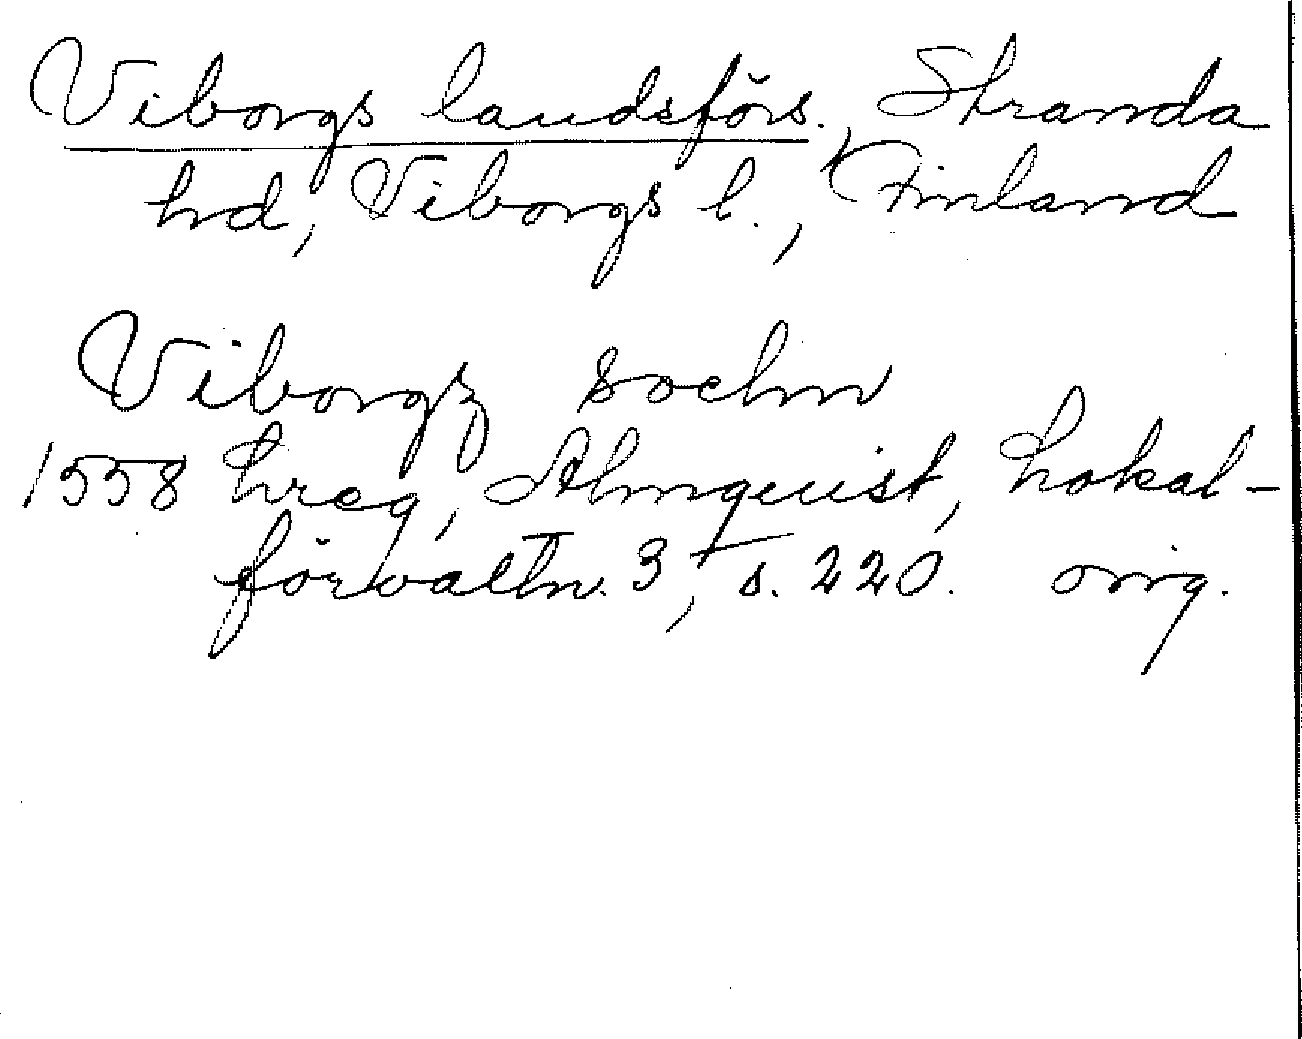 Viborgs landsförs., Stranda
hd, Viborgs l., Finland
Viborgz sochn
1558 hreg, Almquist, Lokal-
förvaltn. 3, s. 220. orig.